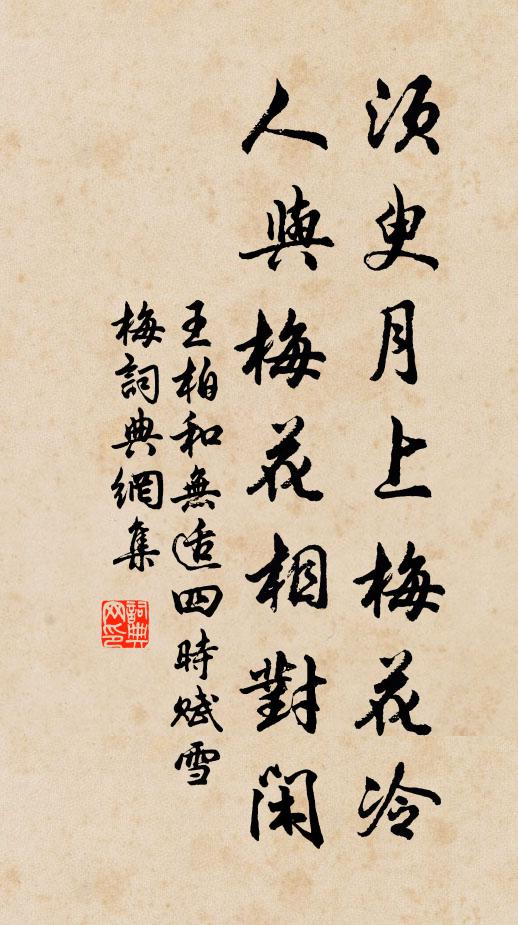 須臾月上梅花冷
人與梅花相對閑
王柏和無適四時賦雪
梅詞典網集
詞典网印